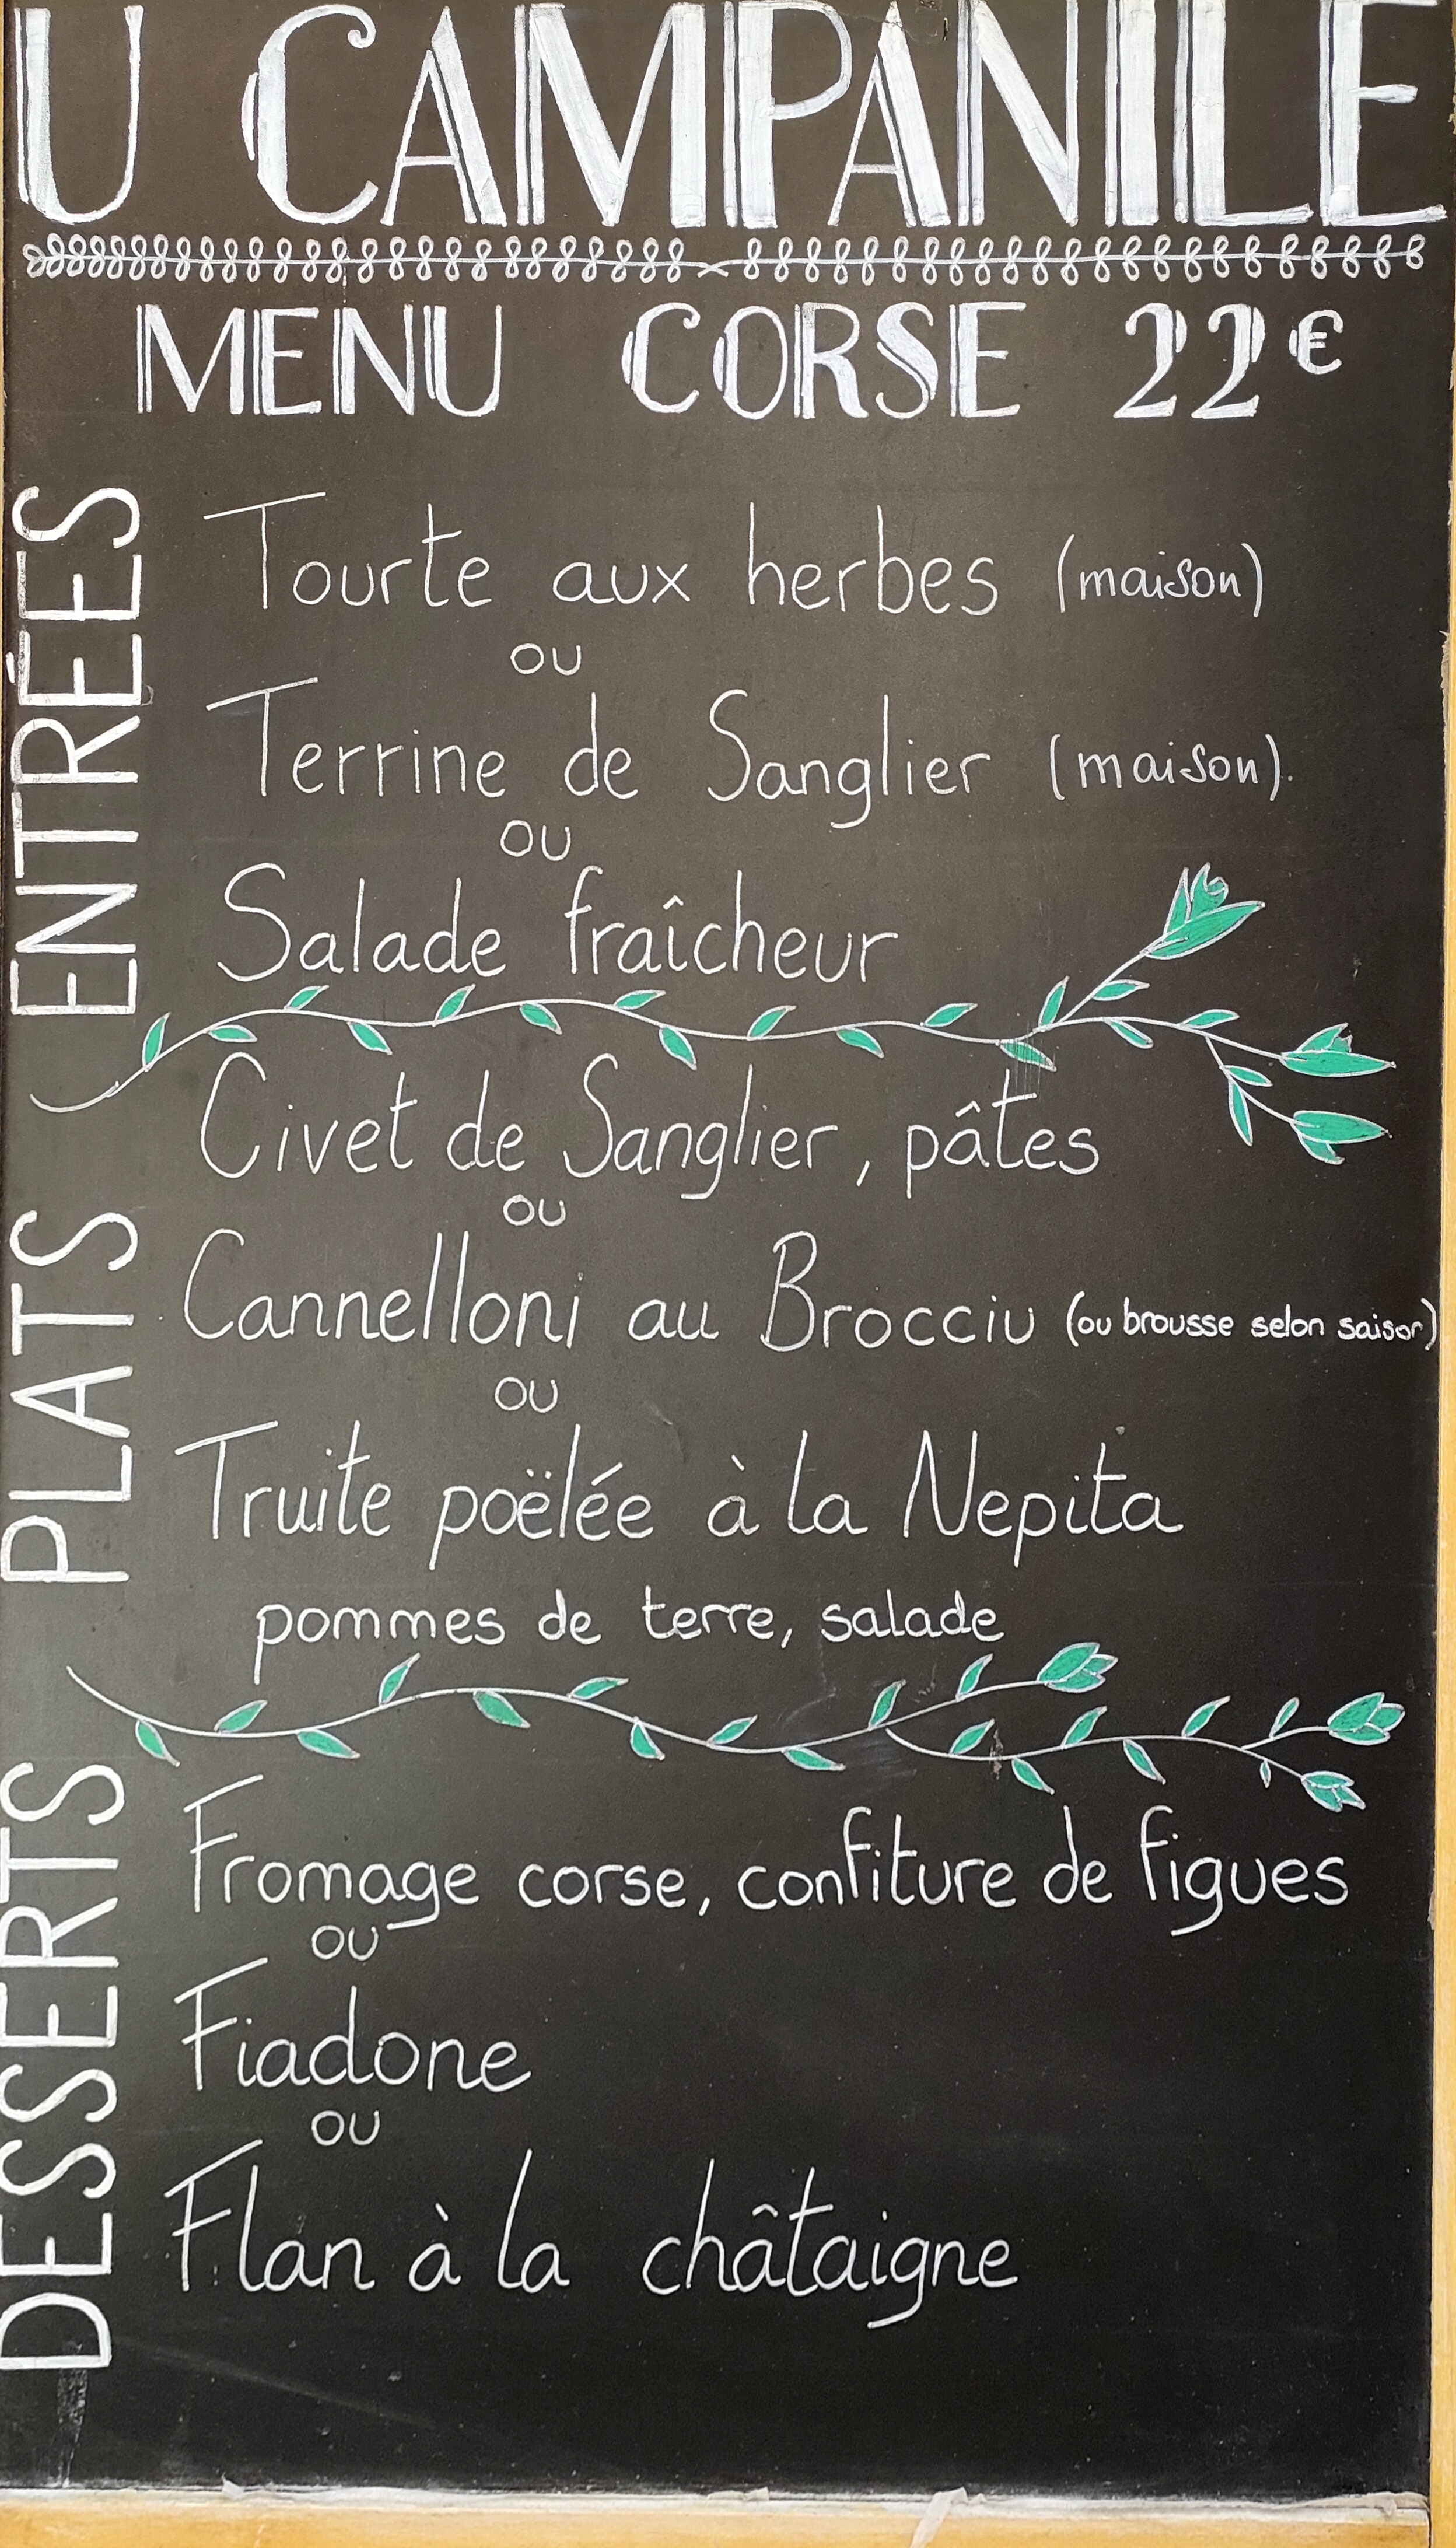 U CAMPANILE
MENU CORSE 22€
ENTRÉES
Tourte aux herbes (maison)
ou
Terrine de Sanglier (maison).
ou
Salade fraîcheur
PLATS
Civet de Sanglier, pâtes
ou
Cannelloni au Brocciu (ou brousse selon saison)
ou
Truite poëlée à la Nepita
pommes de terre, salade
DESSERTS
Fromage corse, confiture de figues
ou
Fiadone
ou
Flan à la châtaigne